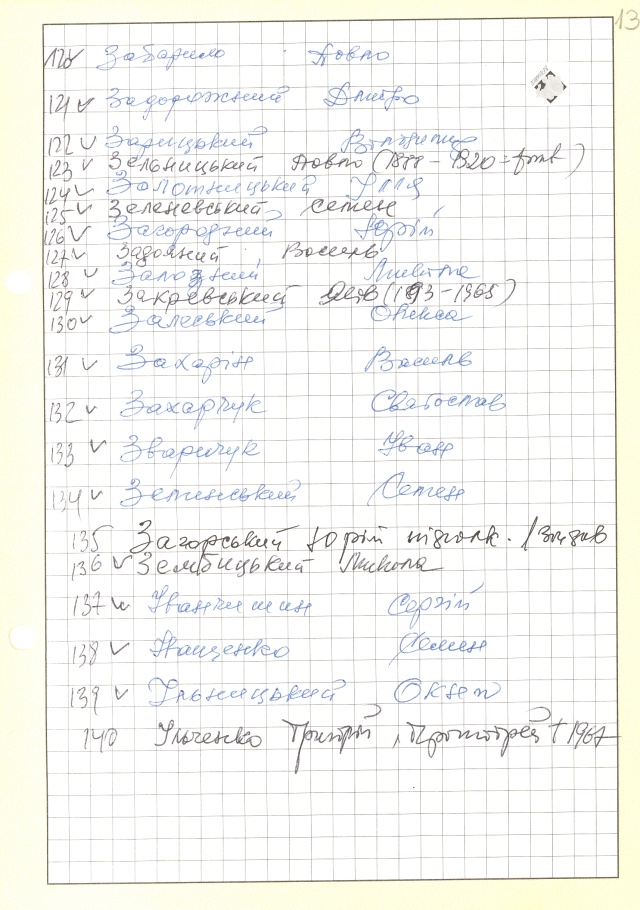 13
120 ✓ Забарило Павло
121 ✓ Задорожний Дмитро
122 ✓ Зарицький Володимир
123 ✓ Зельницький Павло (18 - 1920 =
124 ✓ Золотницький Ілля
125 ✓ Зеленевський Семен
126 ✓ Загородний Юрій
127 ✓ Задояний Василь
128 ✓ Залозний Микита
129 ✓ Закревський (1893-1965)
130 ✓ Залеський Олекса
131 ✓ Захарін Василь
132 ✓ Захарчук Святослав
133 ✓ Зваричук Іван
134 ✓ Зелинський Семен
135 Загорський Юрій підполк.
136 ✓ Зембицький Микола
137 ✓ Іванишин Сергій
138 ✓ Іващенко Семен
139 ✓ Ільницький Оксен
140 Ільченко Григорій, Протоієрей † 1967